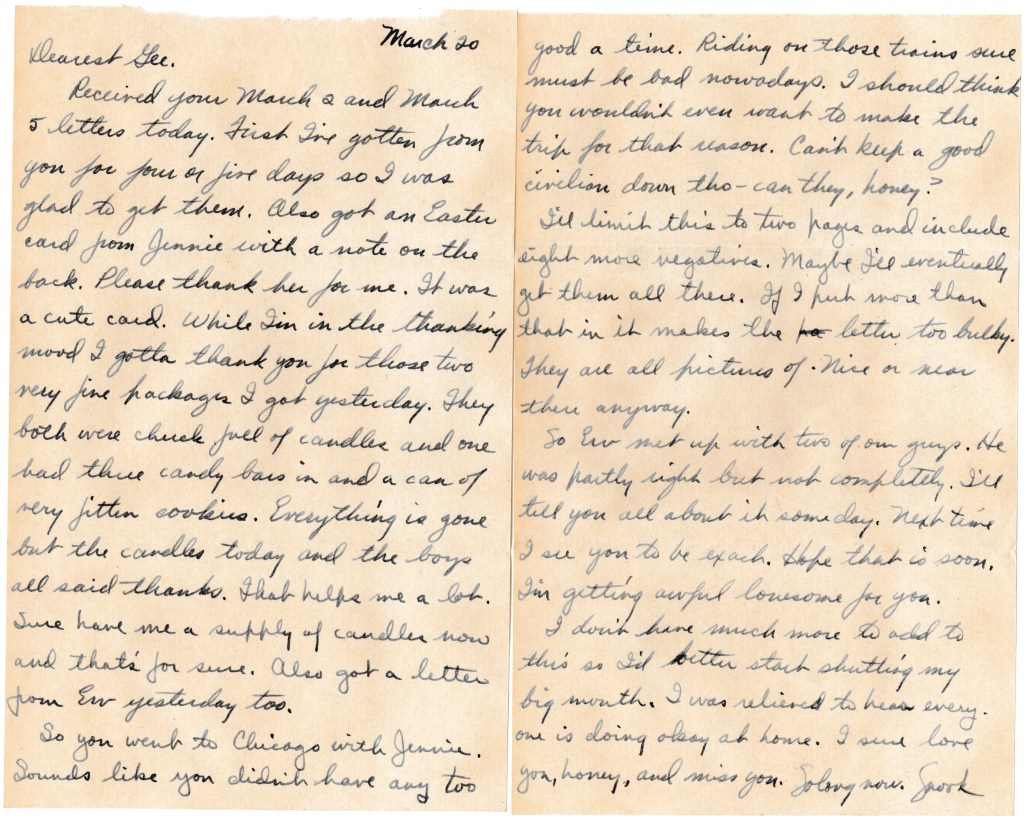 March 20
Dearest Gee.
Received your March 2 and March
5 letters today. First I've gotten from
you for four or five days so I was
glad to get them. Also got an Easter
card from Jennie with a note on the
back. Please thank her for me. It was
a cute card. While I'm in the thanking
mood I gotta thank you for those two
very fine packages I got yesterday. They
both were chuck full of candles and one
had three candy bars in and a can of
very fitten cookies. Everything is gone
but the candles today and the boys
all said thanks. That helps me a lot.
Sure have me a supply of candles now
and that's for sure. Also got a letter
from Erv yesterday too.
So you went to Chicago with Jennie.
Sounds like you didn't have any too
good a time. Riding on those trains sure
must be bad nowadays. I should think
you wouldn't even want to make the
trip for that reason. Can't keep a good
civilian down tho - can they, honey?
I'll limit this to two pages and include
eight more negatives. Maybe I'll eventually
get them all there. If I put more than
that in it makes the letter too bulky.
They are all pictures of Nice or near
there anyway.
So Erv met up with two of our guys. He
was partly right but not completely. I'll
tell you all about it someday. Next time
I see you to be exact. Hope that is soon.
I'm getting awful lonesome for you.
I don't have much more to add to
this so I'd better start shutting my
big mouth. I was relieved to hear every-
one is doing okay at home. I sure love
you, honey, and miss you. So long now. Spook